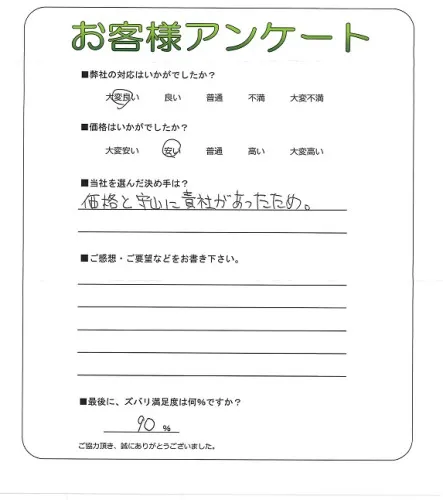 お客様アンケート
■弊社の対応はいかがでしたか?
大変良い 良い 普通 不満 大変不満
■価格はいかがでしたか?
大変安い 安い 普通 高い 大変高い
■当社を選んだ決め手は?
価格と守山に貴社があったため。
■ご感想・ご要望などをお書き下さい。
■最後に、ズバリ満足度は何%ですか?
90 %
ご協力頂き、誠にありがとうございました。